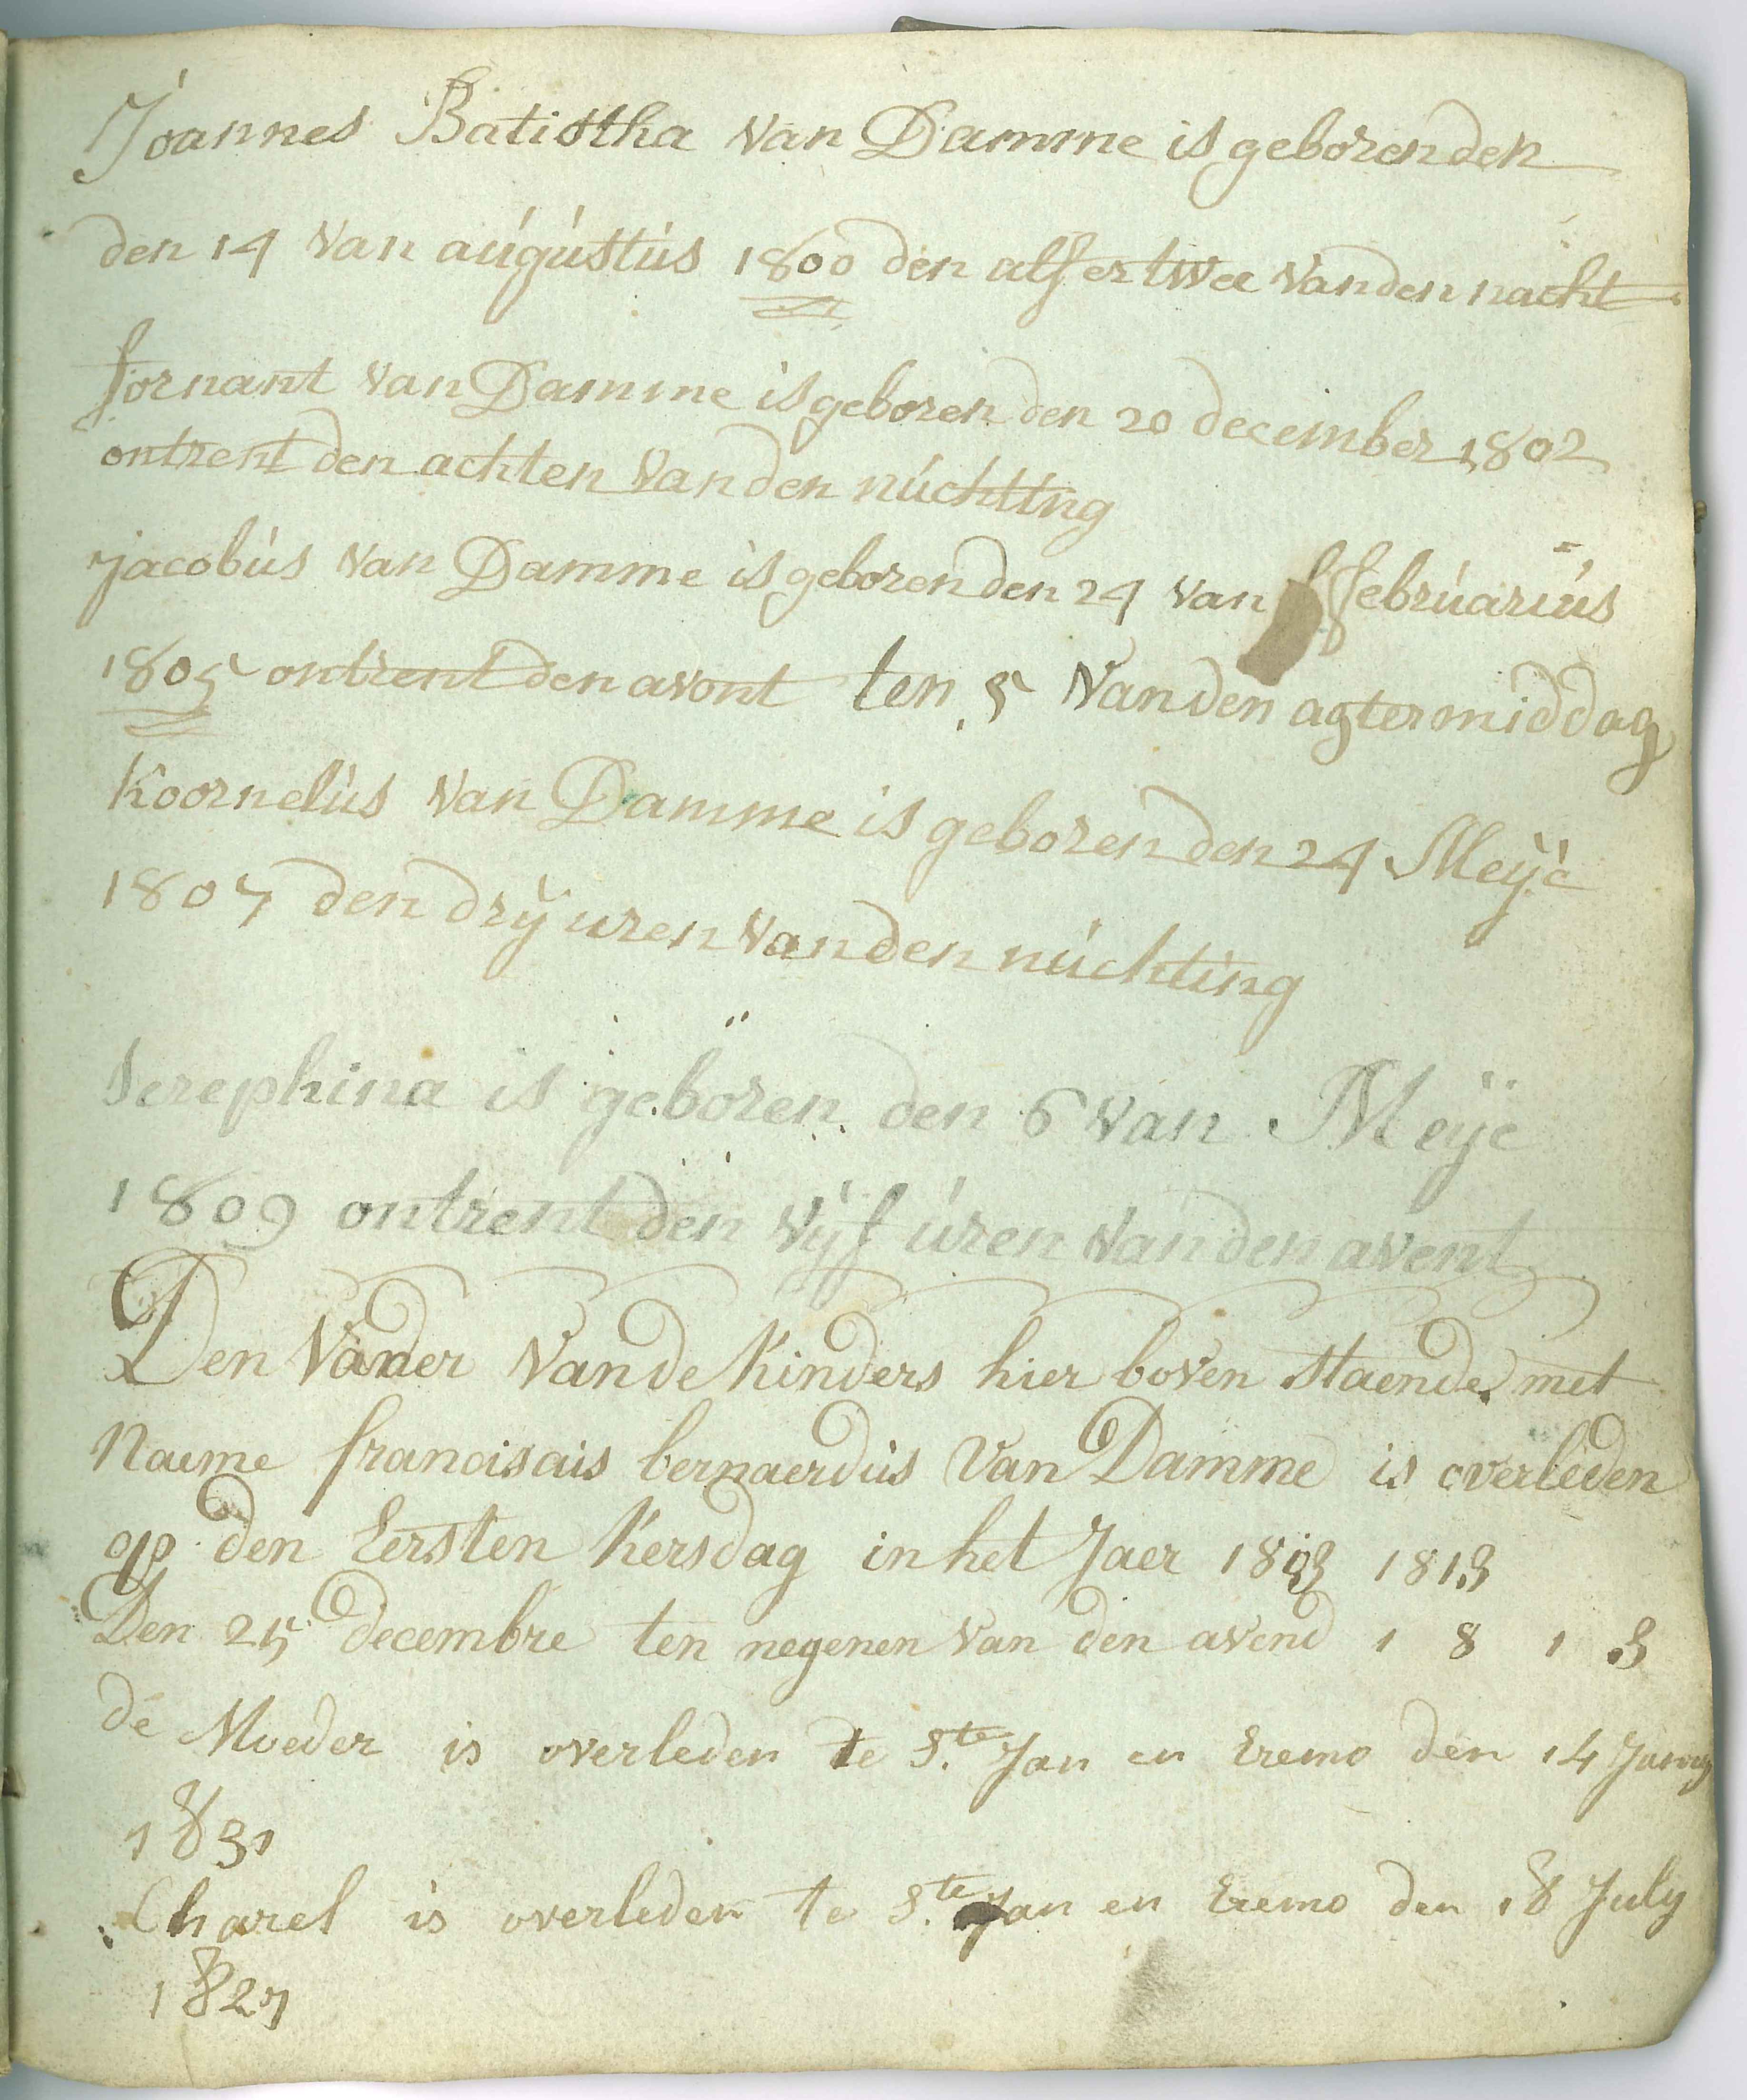 Joannes Batistha van Damme is geboren den
den 14 van aúgústús 1800 den alf er twee van den nacht
fornant van Damme is geboren den 20 december 1802
ontrent den achten van den núchting
jacobús van Damme is geboren den 24 van februariús
1805 ontrent den avont ten 5 van den agtermiddag
Koornelús van Damme is geboren den 24 Meÿe
1807 den drÿ uren van den núchting
Serephina is geboren den 6 van Meÿe
1809 ontrent den vÿf úren van den avent
Den Vader van de Kinders hier boven staende met
Naeme bernaerdús Van Damme is overleden
op den Eersten Kersdag in het Jaer 1813 1813
Den 25 decembre ten negenen van den avend 1 8 1 3
de Moeder is overleden te S.te Jan en Eremo den 14 Juny
1831
Charel is overleden te S.te Jan en Eremo den 18 July
1827